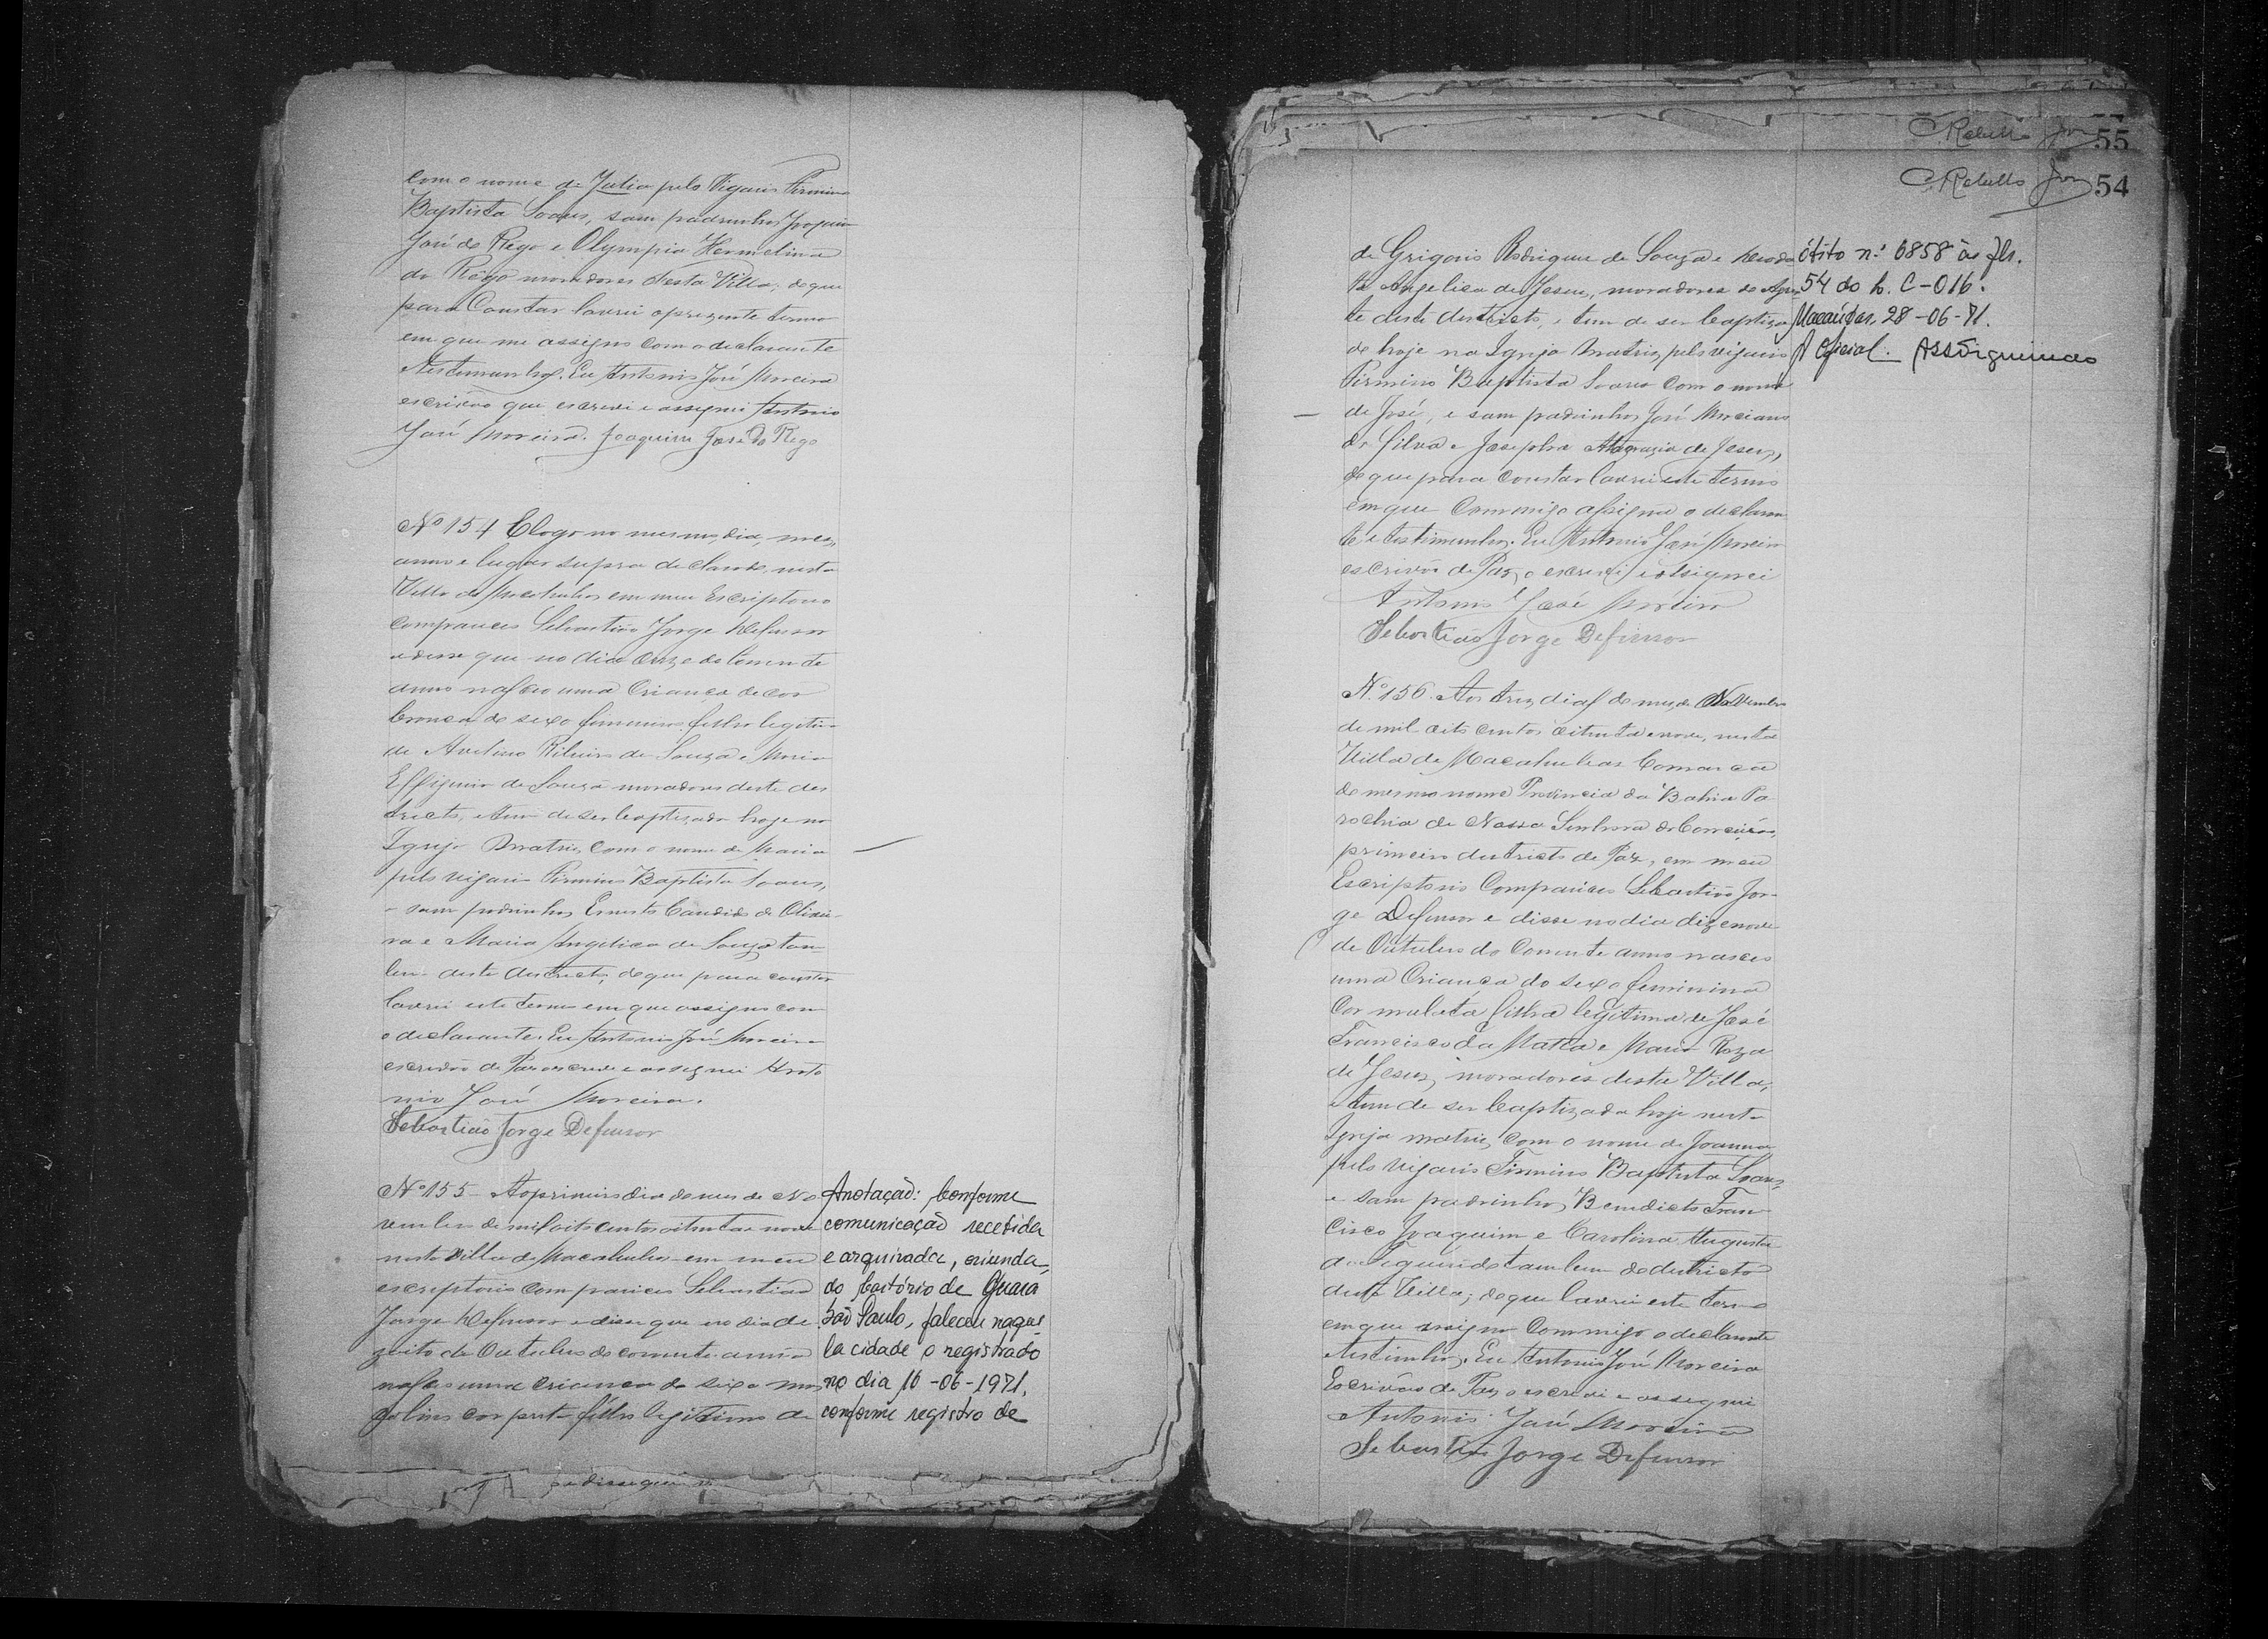 com o nome de Julia pelo Vigario Firmino
Baptista Soares, sam padrinhos Joaquim
José do Rego e Olympia Hermelina
do Rêgo moradores nesta Villa; de que
para Constar lavrei o prezente termo
em que me assigno com o declarante
e testemunhas. Eu Antonio José Moreira
escrivão que escrevi e assignei Antonio
José Moreira. Joaquim José do Rego
Nº 154 E logo no mesmo dia, mes,
anno e lugar supra declarado, nesta
Villa de Macahubas em meu Escriptorio
compareceo Sebastião Jorge Defensor
e disse que no dia onze do Corrente
anno nasceo uma Criança de cor
branca do sexo femenino filha legitima
de Avelino Ribeiro de Souza e Maria
Effigenia de Souza moradores deste des
tricto, e tem de ser baptizada hoje na
Igreja Matriz, com o nome de Maria
pelo vigario Firmino Baptista Soares,
e sam padrinhos Ernesto Candido de Olivei-
ra e Maria Angelica de Souza tam-
bem deste destricto, de que para constar
lavrei este termo em que assigno com
o declarante. Eu Antonio José Moreira
escrivão de Paz o escrevi e assignei Anto
nio José Moreira.
Sebastião Jorge Defensor
Nº 155 Ao primeiro dia do mes de No
vembro de mil oito centos oitenta e nove
nesta Villa de Macahubas em meu
escriptorio compareceo Sebastião
Jorge Defensor e disse que no dia de
zoito de Outubro do corrente anno
nasceo uma criança do sexo mas
colino cor preta filho legitimo de
Anotação: Conforme
comunicação recebida
e arquivada, oriunda
do Cartório de Guará
São Paulo, faleceu naque
la cidade o registrado
no dia 16-06-1971,
conforme registro de
e disse que
Rebello Jor 55
Rebello Jor 54
de Grigorio Rodrigues de Souza e
Angelica de Jesus, moradores
te deste destricto, e tem de ser baptiza
do hoje na Igreja Matriz pelo vigario
Firmino Baptista Soares com o nome
de José, e sam padrinhos José Marciano
da Silva e Josepha de Jesus,
de que para constar lavrei este termo
em que Commigo assigna o declaran
te e testimunhas. Eu Antonio José Moreira
escrivão de Paz, o escrevi e assignei
Antonio José Moreira
Sebastião Jorge Defensor
óbito n.º 6858 às fls.
54 do L. C-016.
Macaúbas, 28-06-71.
A Oficial.
Nº 156 Aos tres dias do mes de Novembro
de mil oito centos oitenta e nove, nesta
Villa de Macahubas Comarca
do mesmo nome Provincia da Bahia Pa
rochia de Nossa Senhora da Conceição,
primeiro destricto de Paz, em meu
Escriptorio Compareceo Sebastião Jor-
ge Defensor e disse no dia dezenove
de Outubro do Corrente anno nasceo
uma Criança do sexo feminino
Cor mulata filha legitima de José
Francisco da Matta e Maria Roza
de Jesus, moradores desta Villa,
e tem de ser baptizada hoje nesta
Igreja matriz, com o nome de Joanna
pelo vigario Firmino Baptista Soares,
e sam padrinhos Benedicto Fran-
cisco Joaquim e Carolina Augusta
de Figueiredo tambem do destricto
desta Villa; de que lavrei este termo
em que assigna Commigo o declarante
e testimhs. Eu Antonio José Moreira
Escrivão de Paz o escrevi e assignei
Antonio José Moreira
Sebastião Jorge Defensor